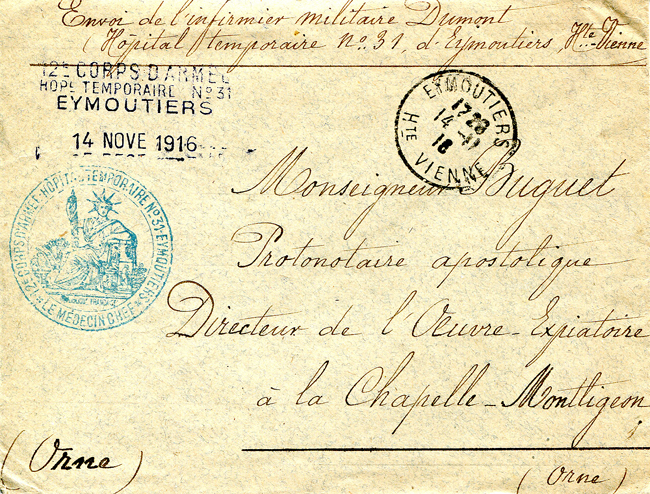 Envoi de l'infirmier militaire Dumont
(Hôpital temporaire No. 31, d'Eymoutiers, Hte-Vienne
12E CORPS D'ARMEE
HOPL TEMPORAIRE No 31
EYMOUTIERS
14 NOVE 1916
EYMOUTIERS
17 20
14 -11
16
HTE VIENNE
12E CORPS D'ARMEE. HOPITAL TEMPORAIRE No 31. EYMOUTIERS
LE MÉDECIN CHEF
Monseigneur Buguet
Protonotaire apostolique
Directeur de l'Œuvre-Expiatoire
à la Chapelle-Montligeon
(Orne)
(Orne)